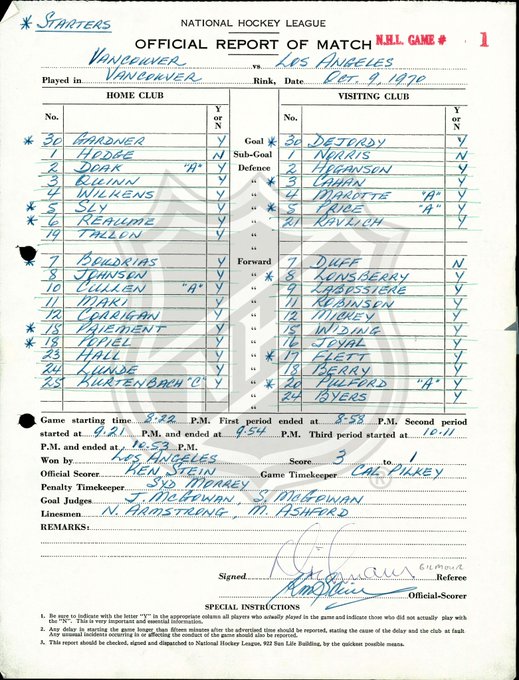 * STARTERS
NATIONAL HOCKEY LEAGUE
OFFICIAL REPORT OF MATCH N.H.L. GAME # 1
VANCOUVER vs. LOS ANGELES
Played in VANCOUVER Rink, Date OCT. 9, 1970
HOME CLUB VISITING CLUB
No. Y or N No. Y or N
* 30 GARDNER Y Goal * 30 DEJORDY Y
1 HODGE N Sub-Goal 1 NORRIS N
2 DOAK "A" Y Defence 2 HOGANSON Y
3 QUINN Y " * 3 CAHAN Y
4 WILKENS Y " 4 MAROTTE "A" Y
* 5 SLY Y " * 5 PRICE "A" Y
* 6 REAUME Y " 21 RAVLICH Y
19 TALLON Y "
"
* 7 BOUDRIAS Y Forward 7 DUFF N
8 JOHNSON Y " * 8 LONSBERRY Y
10 CULLEN "A" Y " 9 LABOSSIERE Y
11 MAKI Y " 11 ROBINSON Y
12 CORRIGAN Y " 12 MICKEY Y
* 15 PAIEMENT Y " 15 WIDING Y
* 18 POPIEL Y " 16 JOYAL Y
23 HALL Y " * 17 FLETT Y
24 LUNDE Y " 18 BERRY Y
25 KURTENBACH "C" Y " * 20 PULFORD "A" Y
" 24 BYERS Y
Game starting time 8-22 P.M. First period ended at 8-58 P.M. Second period
started at 9-21 P.M. and ended at 9-54 P.M. Third period started at 10-11
P.M. and ended at 10-53 P.M.
Won by LOS ANGELES Score 3 to 1
Official Scorer KEN STEIN Game Timekeeper CAL PILKEY
Penalty Timekeeper SYD MORREY
Goal Judges J. MCGOWAN, S. MCGOWAN
Linesmen N. ARMSTRONG, M. ASHFORD
REMARKS:
GILMOUR
Signed Referee
Official-Scorer
SPECIAL INSTRUCTIONS
1. Be sure to indicate with the letter "Y" in the appropriate column all players who actually played in the game and indicate those who did not actually play with
the "N". This is very important and essential information.
2. Any delay in starting the game longer than fifteen minutes after the advertised time should be reported, stating the cause of the delay and the club at fault
Any unusual incidents occurring in or affecting the conduct of the game should also be reported.
3. This report should be checked, signed and dispatched to National Hockey League, 922 Sun Life Building, by the quickest possible means.